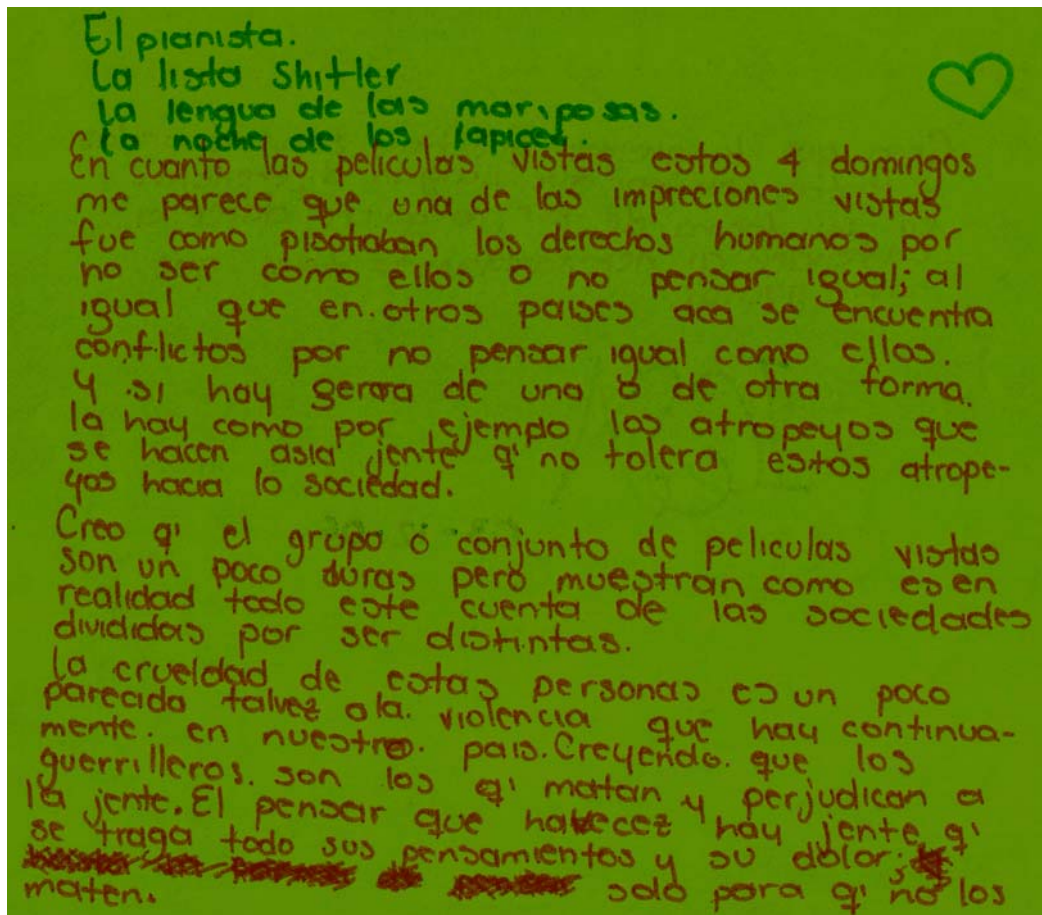 El pianista.
La lista Shitler
La lengua de las mariposas.
La noche de los lapices.
En cuanto las peliculas vistas estos 4 domingos
me parece que una de las impreciones vistas
fue como pisotiaban los derechos humanos por
no ser como ellos o no pensar igual; al
igual que en otros paises aca se encuentra
conflictos por no pensar igual como ellos.
Y si hay gerra de una ó de otra forma.
la hay como por ejemplo los atropeyos que
se hacen asia jente q' no tolera estos atrope-
yos hacia la sociedad.
Creo q' el grupo ó conjunto de peliculas vistas
son un poco duras pero muestran como es en
realidad todo este cuento de las sociedades
divididas por ser distintas.
La crueldad de estas personas es un poco
parecida talvez a la. violencia que hay continua-
mente. en nuestro. pais. Creyendo. que los
guerrilleros. son los q' matan y perjudican a
la jente. El pensar que havecez hay jente q'
se traga todo sus pensamientos y su dolor;
solo para q' no los
maten.